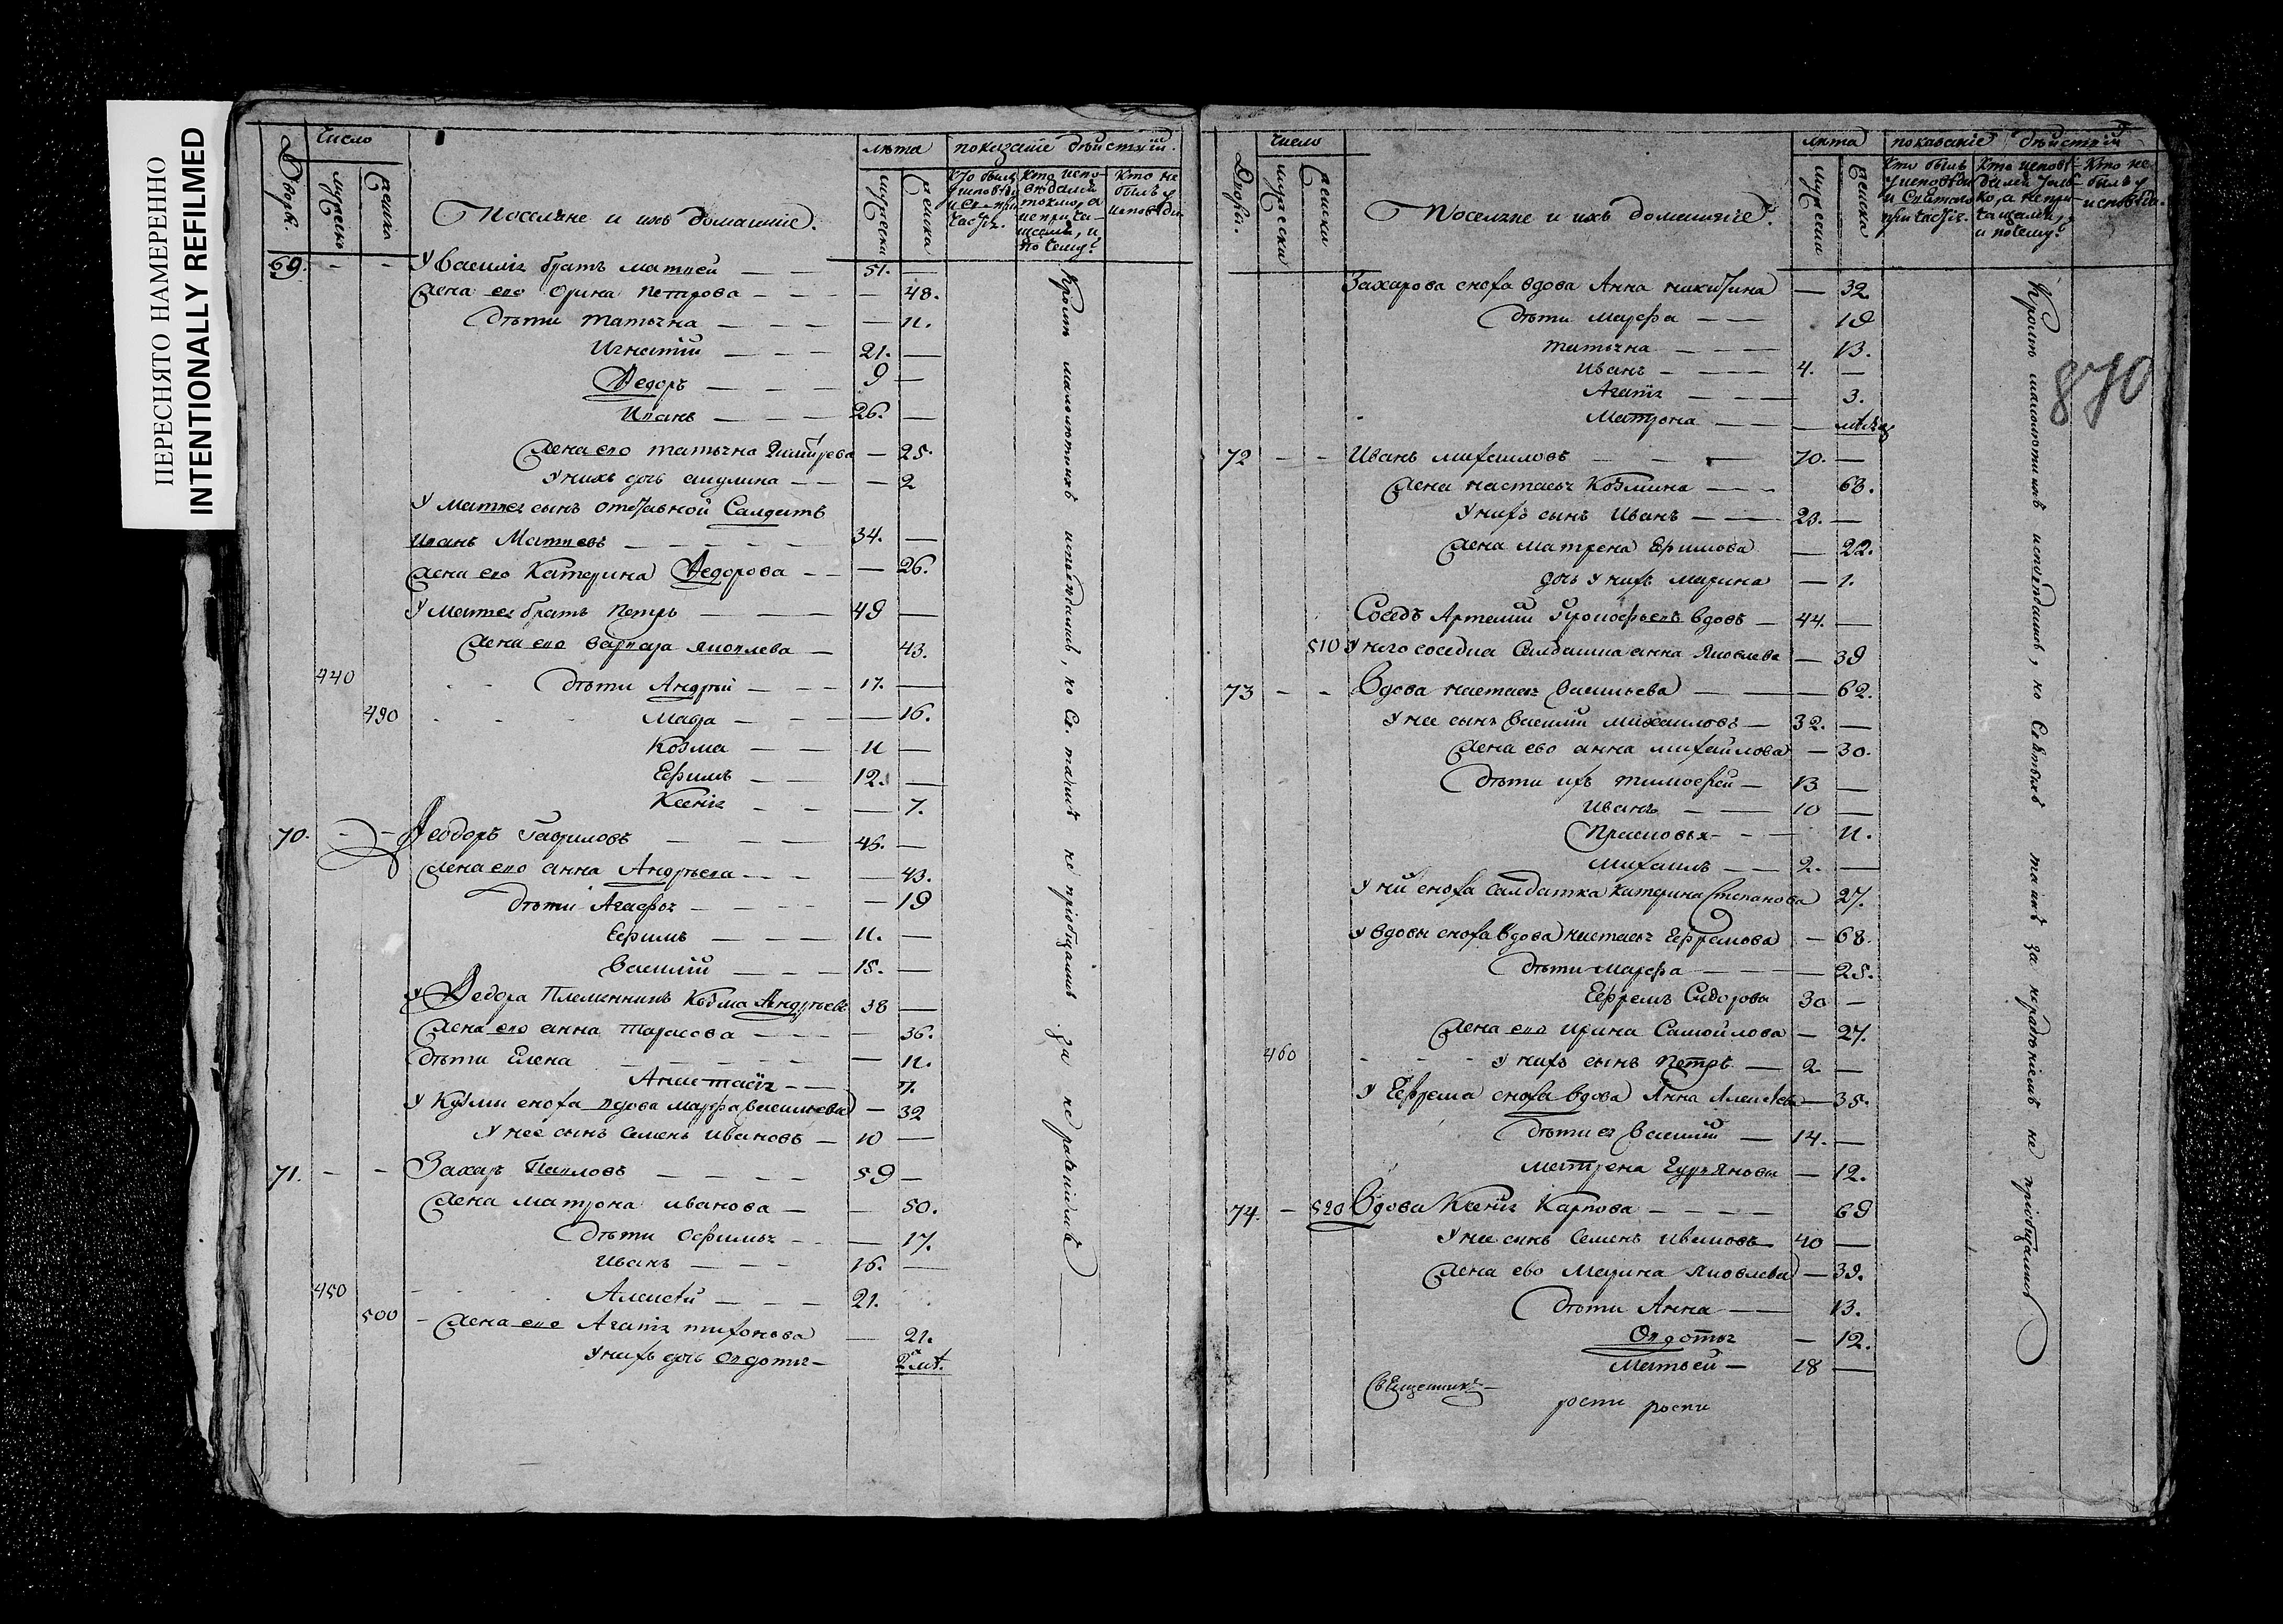 ПЕРЕСНЯТО НАМЕРЕННО
INTENTIONALLY REFILMED
Число
лѣта показаніе дѣйствій.
Дворы.
мужеска
женска
Поселяне и ихъ домашніе.
мужеска
женска
кто былъ у исповѣди и Св. причастія.
Кто исповѣдался токмо, а не причащался, и по чему?
Кто не былъ у исповѣди.
69. - - У Василія братъ матвей 51. —
Жена ево Орина Петрова — 48.
Дѣти татьяна — 11.
Игнатій 21. —
Ѳедоръ 9 —
Иванъ 26. —
Жена ево татьяна Дмитрева — 25.
У нихъ дочь акулина — 2
У Матвея сынъ отставной Салдатъ
Иванъ Матвевъ 34. —
Жена ево Катерина Ѳедорова — 26.
У Матвея братъ Петръ 49 —
Жена ево Варвара Яковлева 43.
440 Дѣти Андрѣй 17. —
490 Мавра — 16.
Козма 11 —
Ефимъ 12. —
Ксенія — 7.
70. - - Ѳеодоръ Гавриловъ 46. —
Жена ево анна Андрѣева — 43.
Дѣти Агафья — 19
Ефимъ 11. —
Василій 15. —
У Ѳедора Племянникъ Козма Андрѣевъ 38 —
Жена ево анна Тарасова — 36.
Дѣти Елена — 11.
Анастасія 7.
У Кузмы сноха вдова марфа васильева — 32
У нее сынъ Семенъ Ивановъ 10 —
71. - - Захаръ Павловъ 59 —
Жена матрона иванова — 50.
Дѣти Офимья — 17.
Иванъ 16. —
450 Алексѣй 21.
500 Жена ево Агапія тихонова — 21.
У нихъ дочь Овдотья 2 мѣ.
Кромѣ малолѣтнихъ исповѣдались, но Св. таинъ не пріобщались за нераченіемъ
число
лѣта показаніе дѣйствій
Дворы.
мужески
женски
Поселяне и ихъ домашніе.
мужески
женска
Кто былъ у исповѣди и Святаго причастія.
Кто исповѣдался только, а не причащался, и почему?
Кто не былъ у исповѣди.
870
Захарова сноха вдова Анна никитина — 32
Дѣти марфа 19
татьяна 13.
Иванъ 4. —
Агапія 3.
Матрона —
72 - - Иванъ михаиловъ 70. —
Жена настасья Козмина 63.
У нихъ сынъ Иванъ 23. —
Жена матрена Ефимова — 22.
дочь у нихъ марина — 1.
Соседъ Артемій Прокофьевъ вдовъ 44. —
510 У него соседка Салдатка анна Яковлева — 39
73 - - Вдова настасья васильева — 62.
У нее сынъ василій михаиловъ 32. —
Жена ево анна михайлова — 30.
Дѣти ихъ тимофей 13 —
Иванъ 10 —
Прасковья 11.
михаилъ 2. —
У ней сноха салдатка катерина Степанова 27.
У вдовы сноха вдова настасья Ефремова — 68.
Дѣти марфа — 25.
Ефремъ Сидоровъ 30 —
Жена ево ирина Самойлова — 27.
460 У нихъ сынъ Петръ 2. —
У Ефрема сноха вдова Анна Алексѣева — 35.
Дѣти ея василій 14. —
матрена Гурьянова — 12.
74. - 520 Вдова Ксенія Карпова 69
У нее сынъ Семенъ Ивановъ 40 —
Жена ево Марина Яковлева — 39.
Дѣти Анна 13.
Овдотья — 12.
Матвей 18 —
Священникъ
Кромѣ малолѣтнихъ исповѣдались, но Святыхъ таинъ за нерадѣніемъ не пріобщались